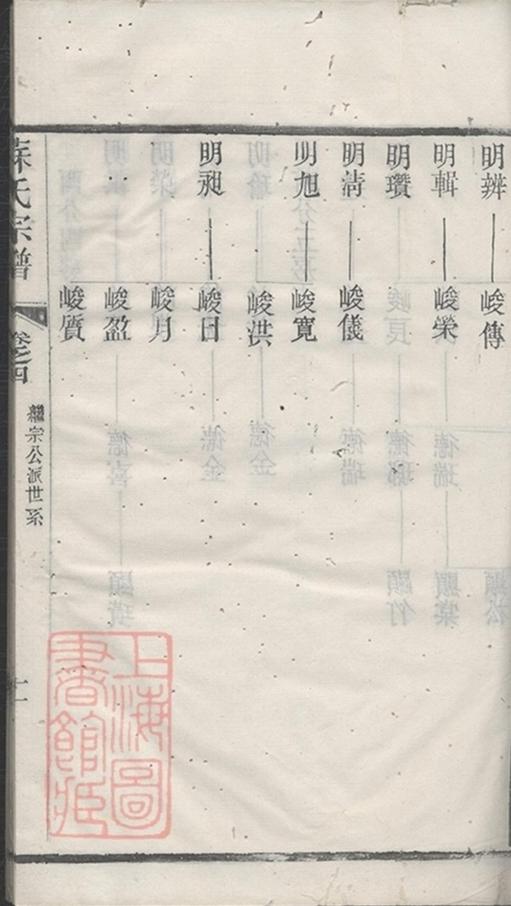 明辨 峻傳
明輯 峻榮
明瓚
明清 峻儀
明旭 峻寬
峻洪
明昶 峻日
峻月
峻盈
峻質
氏宗譜 卷之四
繼宗公派世系
上海圖
書館藏